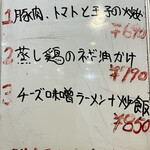 1 豚肉、トマトと玉子の炒め
¥690
2 蒸し鶏のネギ油かけ
¥190
3 チーズ味噌ラーメン+炒飯
¥850